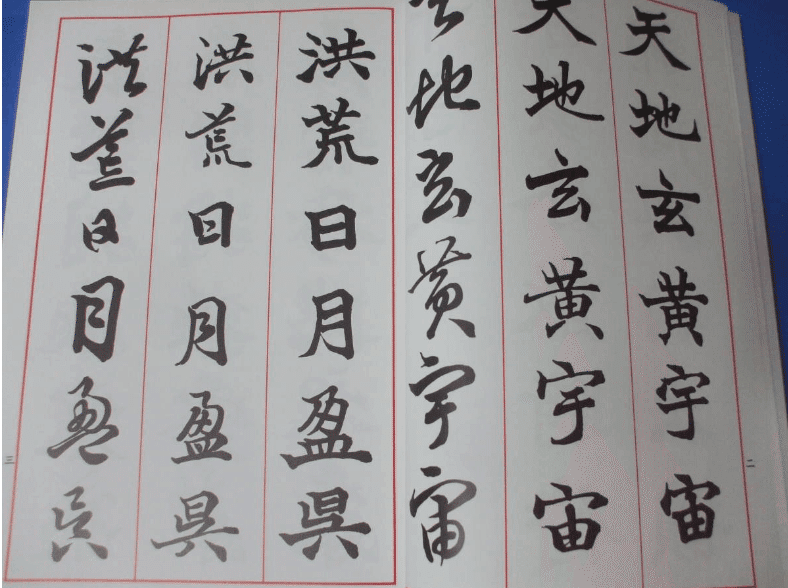 天地玄黄宇宙
天地玄黄宇宙
天地玄黄宇宙
洪荒日月盈昃
洪荒日月盈昃
洪荒日月盈昃
二
三